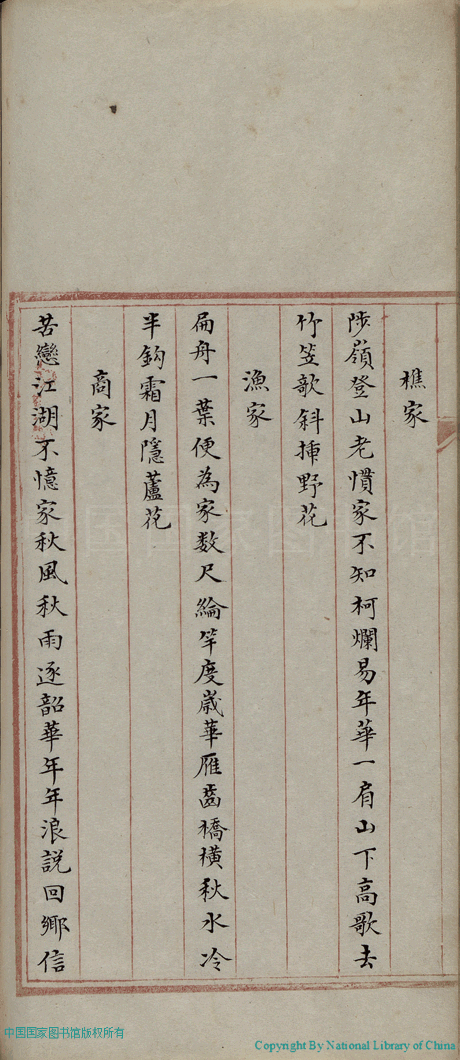 樵家
陟嶺登山老慣家不知柯爛易年華一肩山下高歌去
竹笠歌斜揷野花
漁家
扁舟一葉便為家数尺綸竿度歲華雁齒橋橫秋水冷
半鈎霜月隱蘆花
商家
苦戀江湖不憶家秋風秋雨逐韶華年年浪説回鄉信
中国国家图书馆
中国国家图书馆版权所有
Copyright By National Library of China